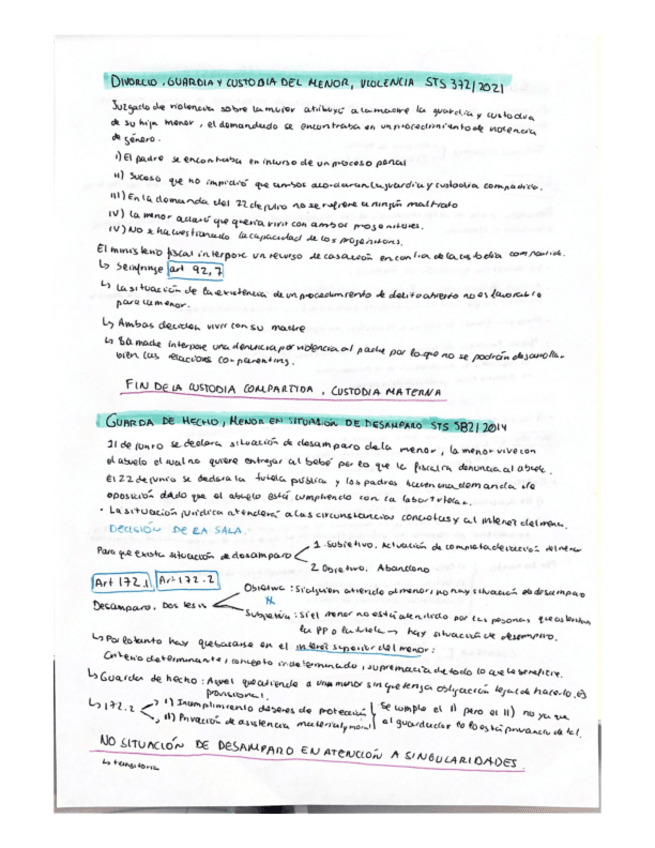 DIVORCIO, GUARDIA Y CUSTODIA DEL MENOR, VIOLENCIA STS 372/2021
Juzgado de violencia sobre la mujer atribuyó a la madre la guardia y custodia
de su hija menor, el demandado se encontraba en un procedimiento de violencia
de género.
I) El padre se encontraba en incurso de un proceso penal
II) Suceso que no impidió que ambos acordaran la guardia y custodia compartida.
III) En la demanda del 22 de julio no se refiere a ningún maltrato
IV) La menor aclaró que quería vivir con ambos progenitores.
IV) No se ha cuestionado la capacidad de los progenitores.
El ministerio fiscal interpone un recurso de casación en contra de la custodia compartida.
↳ Se infringe art 92,7
↳ La situación de la existencia de un procedimiento de delito abierto no es favorable
para la menor.
↳ Ambas deciden vivir con su madre
↳ La madre interpone una denuncia por violencia al padre por lo que no se podrán desarrollar
bien las relaciones co-parenting.
FIN DE LA CUSTODIA COMPARTIDA, CUSTODIA MATERNA
GUARDA DE HECHO, MENOR EN SITUACIÓN DE DESAMPARO STS 582/2014
21 de junio se declara situación de desamparo de la menor, la menor vive con
el abuelo el cual no quiere entregar al bebé por lo que la fiscalía denuncia al abuelo.
El 22 de junio se declara la tutela pública y los padres hacen una demanda de
oposición dado que el abuelo está cumpliendo con la labor tutelar.
• La situación jurídica atenderá a las circunstancias concretas y al interés del menor.
DECISIÓN DE LA SALA.
Para que exista situación de desamparo
1. Subjetivo. Actuación de completa dejación del menor
2. Objetivo. Abandono
Art 172.1 Art 172.2
Desamparo. Dos tesis
Objetiva: Si alguien atiende al menor, no hay situación de desamparo
Subjetiva: Si el menor no está atendido por las personas que ostentan
la PP o la tutela → hay situación de desamparo.
↳ Por lo tanto hay que basarse en el interés superior del menor:
Criterio determinante, concepto indeterminado, supremacía de todo lo que le beneficie.
↳ Guarda de hecho: Aquel que atiende a una menor sin que tenga obligación legal de hacerlo, es
provisional.
↳ 172.2
I) Incumplimiento deberes de protección
II) Privación de asistencia material y moral
Se cumple el I) pero el II) no ya que
el guardador no lo está privando de tal.
NO SITUACIÓN DE DESAMPARO EN ATENCIÓN A SINGULARIDADES.
↳ transitoria